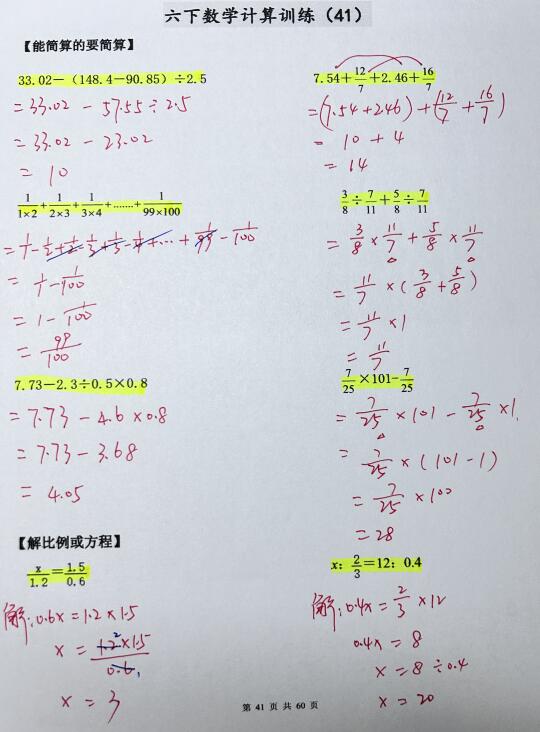 六下数学计算训练（41）
【能简算的要简算】
33.02－（148.4－90.85）÷2.5
=33.02 - 57.55÷2.5
=33.02 - 23.02
= 10
7.54+12/7+2.46+16/7
=(7.54+2.46)+(12/7+16/7)
= 10 + 4
= 14
1/(1×2)+1/(2×3)+1/(3×4)+.......+1/(99×100)
=1/1-1/2+1/2-1/3+1/3-1/4+...+1/99-1/100
= 1/1-1/100
= 1-1/100
= 99/100
3/8÷7/11+5/8÷7/11
= 3/8×11/7+5/8×11/7
= 11/7×(3/8+5/8)
= 11/7×1
= 11/7
7.73－2.3÷0.5×0.8
= 7.73 - 4.6×0.8
= 7.73 - 3.68
= 4.05
7/25×101-7/25
= 7/25×101-7/25×1
= 7/25×(101-1)
= 7/25×100
= 28
【解比例或方程】
x/1.2=1.5/0.6
解:0.6x=1.2×1.5
x = 1.2×1.5/0.6
x = 3
x：2/3=12：0.4
解:0.4x=2/3×12
0.4x = 8
x = 8÷0.4
x = 20
第 41 页 共 60 页